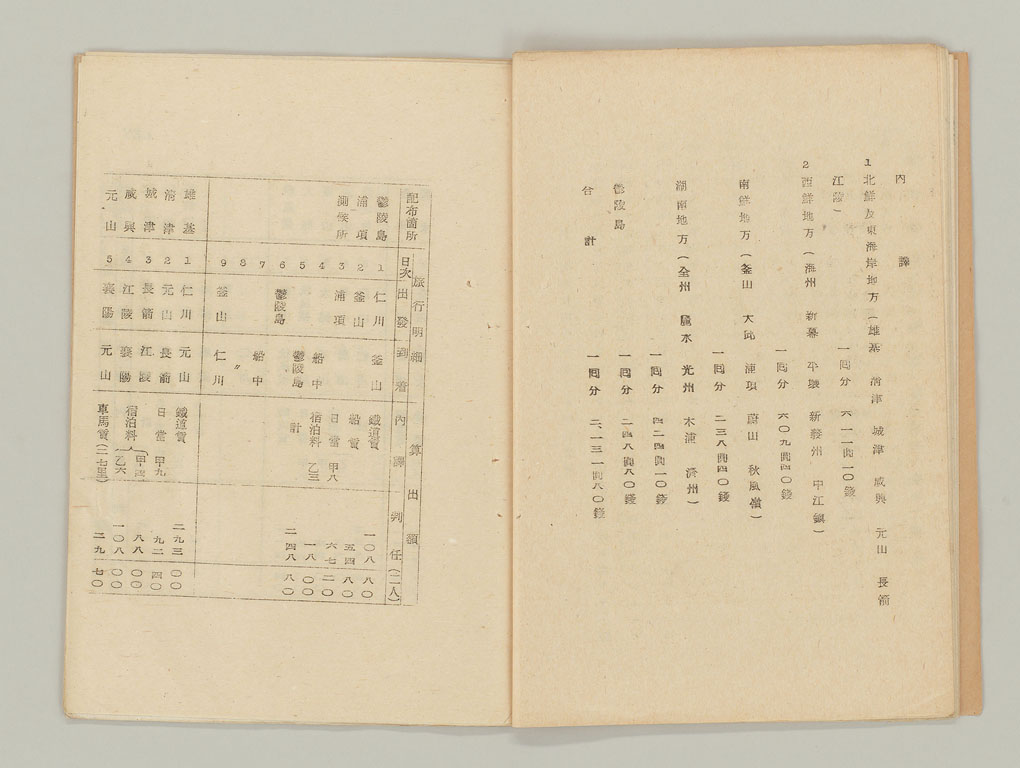 内譯
1北鮮及東海岸地方(雄基 清津 城津 咸興 元山 長箭
江陵) 一回分 六一一圓一〇錢
2西鮮地方(海州 新幕 平壤 新義州 中江鎭)
一回分 六〇九圓四〇錢
南鮮地方(釜山 大邱 浦項 蔚山 秋風嶺)
一回分 二三八圓四〇錢
湖南地方(全州 麗水 光州 木浦 濟州)
一回分 四二四圓一〇錢
鬱陵島 一回分 二四八圓八〇錢
合計 一回分 二、一三一圓八〇錢
旅行明細 算出額
配布箇所 日次 出發 到着 内譯 判任(二人)
鬱陵島 1 仁川 釜山 鐵道賃 一〇八 八〇
浦項 2 釜山 船賃 五四 八〇
測候所 3 浦項 日當 甲八 六七 二〇
4 船中 宿泊料 乙三 一八 〇〇
5 鬱陵島 計 二四八 八〇
6 鬱陵島
7 船中
8 〃
9 釜山 仁川
雄基 1 仁川 元山 鐵道賃 二九三 〇〇
清津 2 元山 長箭 日當 甲九 九二 四〇
城津 3 長箭 江陵 宿泊料 甲四 八八 〇〇
咸興 4 江陵 襄陽 乙六 一〇八 〇〇
元山 5 襄陽 元山 車馬賃(二七里) 二九 七〇